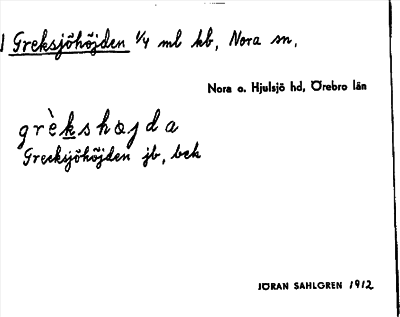 Greksjöhöjden 1/4 ml kb, Nora sn,
Nora o. Hjulsjö hd, Örebro län
grèkshøjda
Greeksjöhöjden jb, bek
JÖRAN SAHLGREN 1912